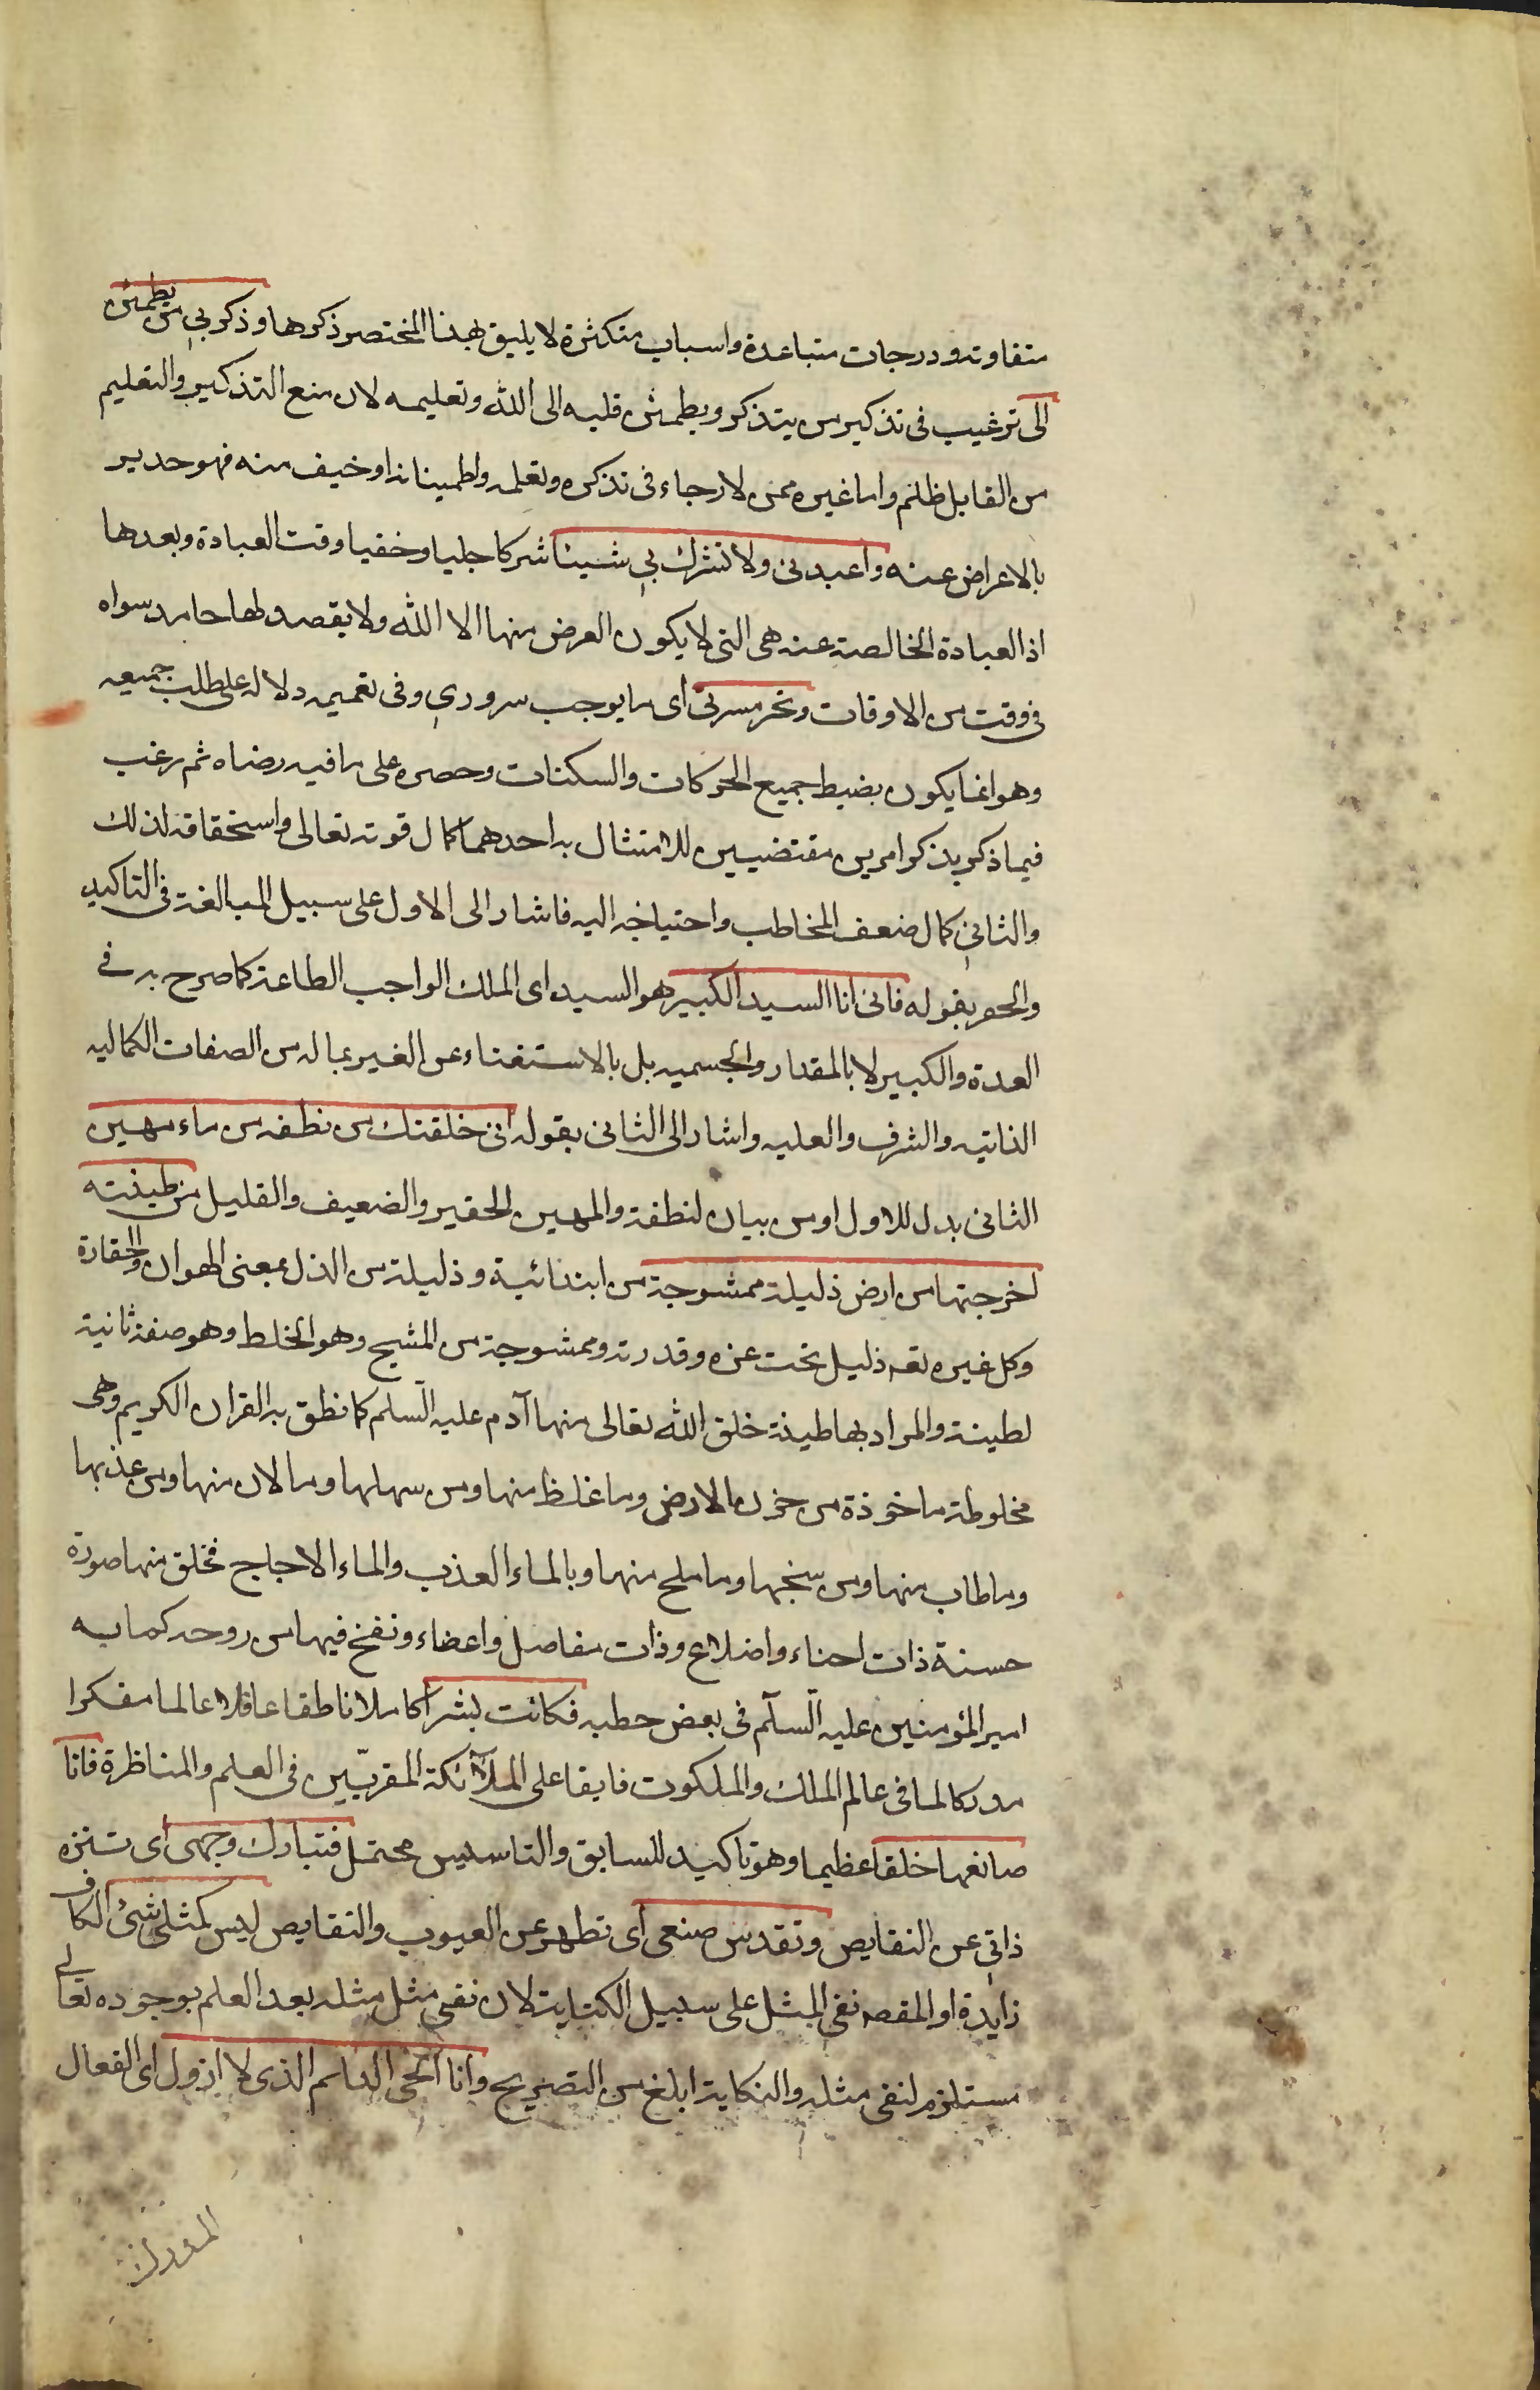 متفاوته ودرجات متباعدة واسباب متكثرة لا يليق بهذا المختصر ذكرها وذكر بي من يطمئن
الى ترغيب فى تذكير من يتذكر ويطمئن قلبه الى الله وتعليمه لان منع التذكير والتعليم
من القابل ظلم واما غيره ممن لا رجاء فى تذكره وتعلمه واطمينانه او خيف منه فهو جدير
بالاعراض عنه واعبدنى ولا تشرك بي شيئا شركا جليا وخفيا وقت العبادة وبعدها
اذ العبادة الخالصة عنه هى التى لا يكون الغرض منها الا الله ولا يقصد لها حامد سواه
فى وقت من الاوقات وتحر مسرتى اى ما يوجب سروري وفى تعميمه دلالة على طلب جميعه
وهو انما يكون بضبط جميع الحركات والسكنات وحصره على ما فيه رضاه ثم رغب
فيما ذكر بذكر امرين مقتضيين للامتثال به احدهما كمال قوته تعالى واستحقاقه لذلك
والثانى كمال ضعف المخاطب واحتياجه اليه فاشار الى الاول على سبيل المبالغة فى التاكيد
والحصر بقوله فانى انا السيد الكبير هو السيد اى الملك الواجب الطاعة كما صرح به فے
العدة والكبير لا بالمقدار والجسميه بل بالاستغناء عن الغير بماله من الصفات الكماليه
الذاتيه والشرف والعليه واشار الى الثانى بقوله انى خلقتك من نطفه من ماء مهين
الثانى بدل للاول او من بيان لنطفة والمهين الحقير والضعيف والقليل من طينته
اخرجتها من ارض ذليلة ممشوجة من ابتدائية وذليلة من الذل بمعنى الهوان والحقارة
وكل غيره تعه ذليل تحت عزه وقدرته وممشوجة من المشيج وهو الخلط وهو صفة ثانية
لطينة والمراد بها طينة خلق الله تعالى منها آدم عليه السلم كما نطق به القران الكريم وهى
مخلوطة ماخوذة من حزن الارض وما غلظ منها ومن سهلها وما لان منها ومن عذبها
وما طاب منها ومن سنجها وما ملح منها وبالماء العذب والماء الاجاج فخلق منها صورة
حسنة ذات احناء واضلاع وذات مفاصل واعضاء ونفخ فيها من روحه كما به
امير المؤمنين عليه السلم فى بعض خطبه فكانت بشرا كاملا ناطقا عاقلا عالما مفكرا
مدركا لما فى عالم الملك والملكوت فايقا على الملآئكة المقربّين فى العلم والمناظرة فانا
صانعها خلقا عظيما وهو تاكيد للسابق والتاسيس محتمل فتبارك وجهى اى تنزه
ذاتي عن النقايص وتقدس صنعى اى تطهر عن العيوب والنقايص ليس كمثلى شئ الكاف
زايدة او المقصه نفى المثل على سبيل الكناية لان نفى مثل مثله بعد العلم بوجوده تعالے
مستلزم لنفى مثله والكناية ابلغ من التصريح وانا الحى الدايم الذى لا ازول اى الفعال
المدرك